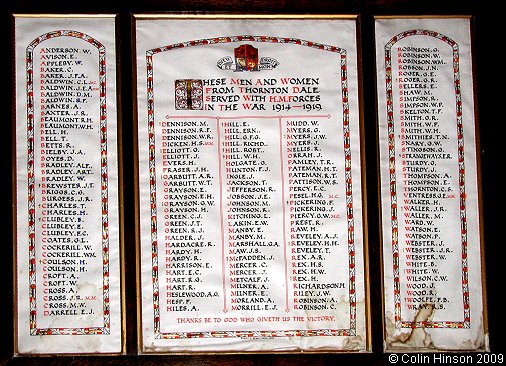 ANDERSON. W.
AVISON. E.
APPLEBY. W.
BAKER. J.
BAKER. J.F.A.
BALDWIN. C.L. M.M.
BALDWIN. J.E.A.
BALDWIN. D.M.
BALDWIN. S.F.
BARNES. A.
BAXTER. J.R.
BEAUMONT. R.H.
BEAUMONT. W.H.
BELL. H.
BELL. T.
BETTS. R.
BIELBY. J.A.
BOYES. D.
BRADLEY. ALF.
BRADLEY. ART.
BRADLEY. W.
BREWSTER. J.T.
BRIGGS. C.G.
BURGESS. J.R.
CHARLES. T.
CHARLES. H.
CLUBLEY. B.
CLUBLEY. E.
CLUBLEY. F.C.
COATES. G.L.
COCKERILL. W.
COCKERILL. WM.
COULSON. H.
COULSON. H.
CROFT. A.
CROFT. W.
CROSS. A.
CROSS. J.R. M.M.
CROSS. M.W.
DARRELL. E.J.
THESE MEN AND WOMEN
FROM THORNTON DALE
SERVED WITH H.M. FORCES
IN THE WAR 1914–1919.
DENNISON. M.
DENNISON. R.F.
DENNISON. W.R.
DICKEN. H.S. M.M.
ELLIOTT. O.
ELLIOTT. J.
EYERS. H.
FRASER. J.H.
GARBUTT. A.R.
GARBUTT. W.T.
GRAYSON. E.
GRAYSON. E.H.
GRAYSON. G.W.
GRAYSON. H.
GREEN. C.J.
GREEN. J.T.
GREEN. R.J.
HALDER. J.
HARDACRE. R.
HARDY. H.
HARDY. R.
HARRISON. E.
HART. E.C.
HART. R.G.
HART. R.
HESLEWOOD. A.G.
HESP. F.
HILES. A.
HILL. E.
HILL. ERN.
HILL. G.F.G.
HILL. RICHD.
HILL. ROBT.
HILL. W.H.
HOLGATE. G.
HUNTON. F.J.
INGLE. J.
JACKSON. T.
JEFFERSON. R.
JOBSON. J.E.
JOHNSON. M.
JOHNSON. R.
KITCHING. E.
LAKIN. E.
MANBY. E.
MANBY. M.
MARSHALL. G.A.
MAW. J.S.
McFADDEN. J.
MERCER. C.
MERCER. J.
METCALF. J.
MILNER. A.
MILNER. E.
MORLAND. A.
MORRILL. E.J.
MUDD. W.
MYERS. G.
MYERS. J.W.
MYERS. J.
NELLIS. R.
ORRAH. J.
PAMLEY. T.R.
PATEMAN. H.T.
PATEMAN. R.T.
PATTISON. W.S.
PERCY. E.C.
PESEL. H.G.
PICKERING. F.
PICKERING. J.
PIERCY. G.W. M.C.
PREST. R.
RAW. H.
REVELEY. A.J.
REVELEY. H.H.
REVELEY. T.
REX. A.R.
REX. H.S.
REX. H.W.
REX. H.
RICHARDSON. H
RILEY. J.W.
ROBINSON. A.
ROBINSON. C.
THANKS BE TO GOD WHO GIVETH US THE VICTORY.
ROBINSON. G.
ROBINSON. W.
ROBINSON. WM.
ROBSON. J.N.
ROGER. G.E.
ROGER. G.R.
SELLERS. E.
SHAW. M.
SIMPSON. R.
SIMPSON. W.P.
SKELTON. T.F.
SMITH. G.R.
SMITH. W.F.
SMITH. W.H.
SMITHIES. T.N.
SNARY. G.W.
STINGSON. G.
STRANGWAYER.
STURDY. G.
STURDY. J.
THOMPSON. A.
THOMPSON. E.
THORNTON. C.
VENTRESS. G.E.
WALKER. H.
WALLER. J.R.
WALLER. M.
WARD. W.
WATSON. E.
WATSON. P.
WEBSTER. J.
WEBSTER. J.R.
WEBSTER. W.
WHITE. B.
WHITE. W.
WILSON. C.W.
WOOD. J.
WOOD. R.
WOOLFE. F.B.
© Colin Hinson 2009